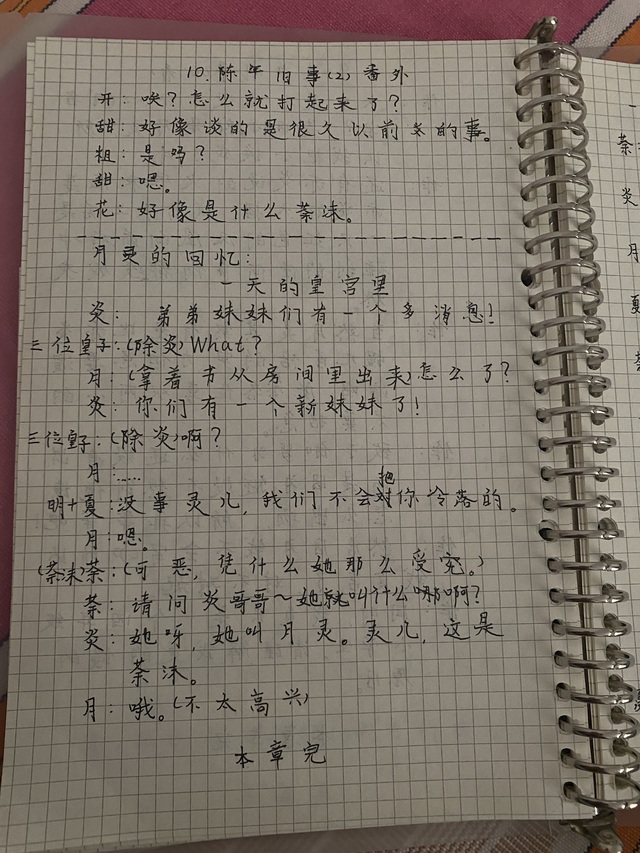 10.陈年旧事(2)番外
开：唉？怎么就打起来了？
甜：好像谈的是很久以前的事。
祖：是吗？
甜：嗯。
花：好像是什么荼沫。
月灵的回忆：
一天的皇宫里
炎：弟弟妹妹们有一个多消息！
三位皇子：(除炎)What？
月：(拿着书从房间里出来)怎么了？
炎：你们有一个新妹妹了！
三位皇子：(除炎)啊？
月：……
明+夏：没事灵儿，我们不会把你冷落的。
月：嗯。
(荼沫)荼：(可恶，凭什么她那么受宠。)
荼：请问炎哥哥~她就叫什么哪啊？
炎：她呀，她叫月灵。灵儿，这是
荼沫。
月：哦。(不太高兴)
本章完
荼
炎
月
夏
荼